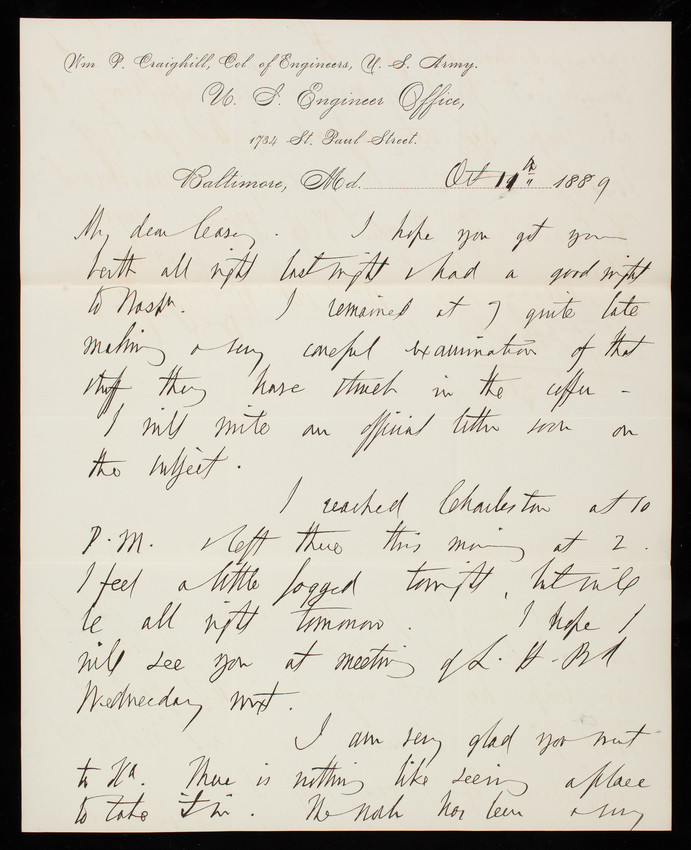 Wm P. Craighill, Col of Engineers, U. S. Army.
U. S. Engineer Office,
1734 St. Paul Street.
Baltimore, Md. Oct 11th 1889
My dear Casey. I hope you got your
berth all right last night & had a good night
to Washn. I remained at 7 quite late
making a very careful examination of that
stuff they have struck in the coffer -
I will write an official letter soon on
the subject.
I reached Charleston at 10
P.M. & left there this morning at 2.
I feel a little fogged tonight, but will
be all right tomorrow. I hope I
will see you at meeting of L. H. Bd
Wednesday next.
I am very glad you went
to Ka. There is nothing like seeing a place
to take it in. The work has been a very